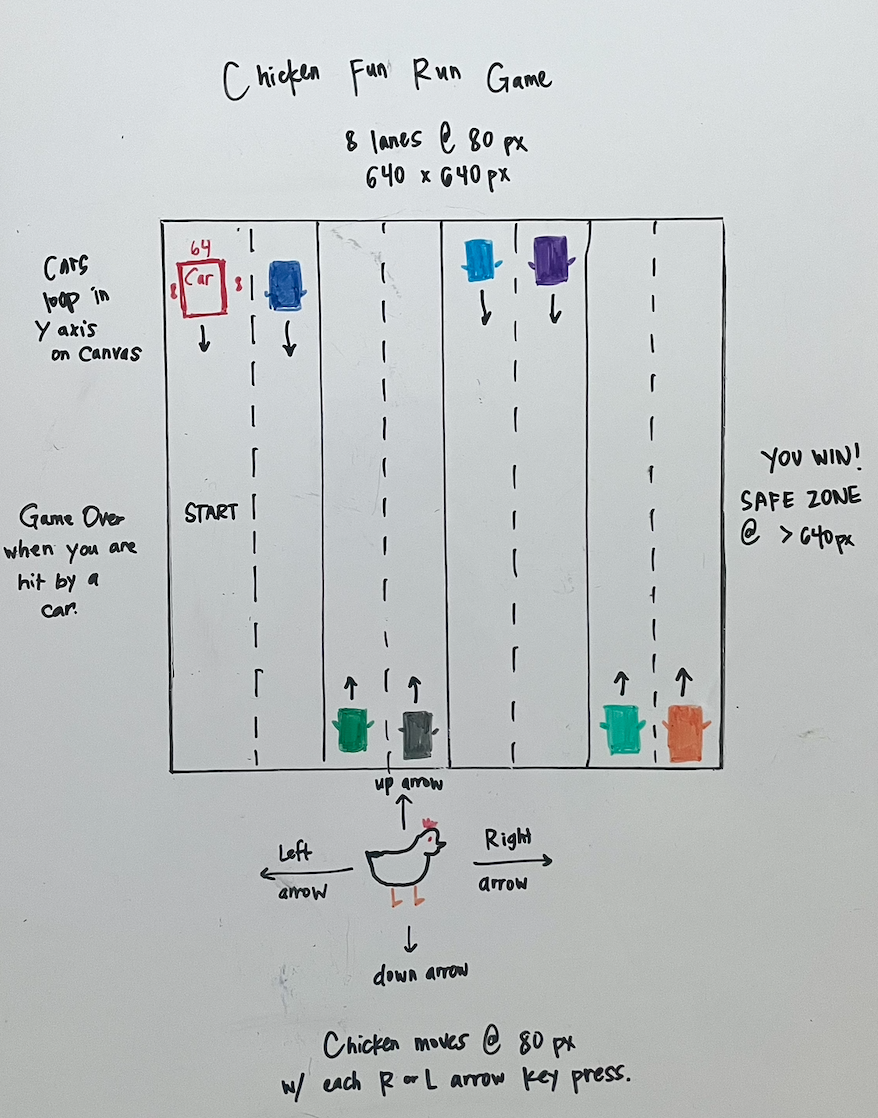 Chicken Fun Run Game
8 lanes @ 80 px
640 x 640px
Cars
loop in
Y axis
on Canvas
64
8 Car 8
START
Game Over
when you are
hit by a
car.
YOU WIN!
SAFE ZONE
@ > 640px
up arrow
Left
arrow
Right
arrow
down arrow
Chicken moves @ 80 px
w/ each R or L arrow key press.